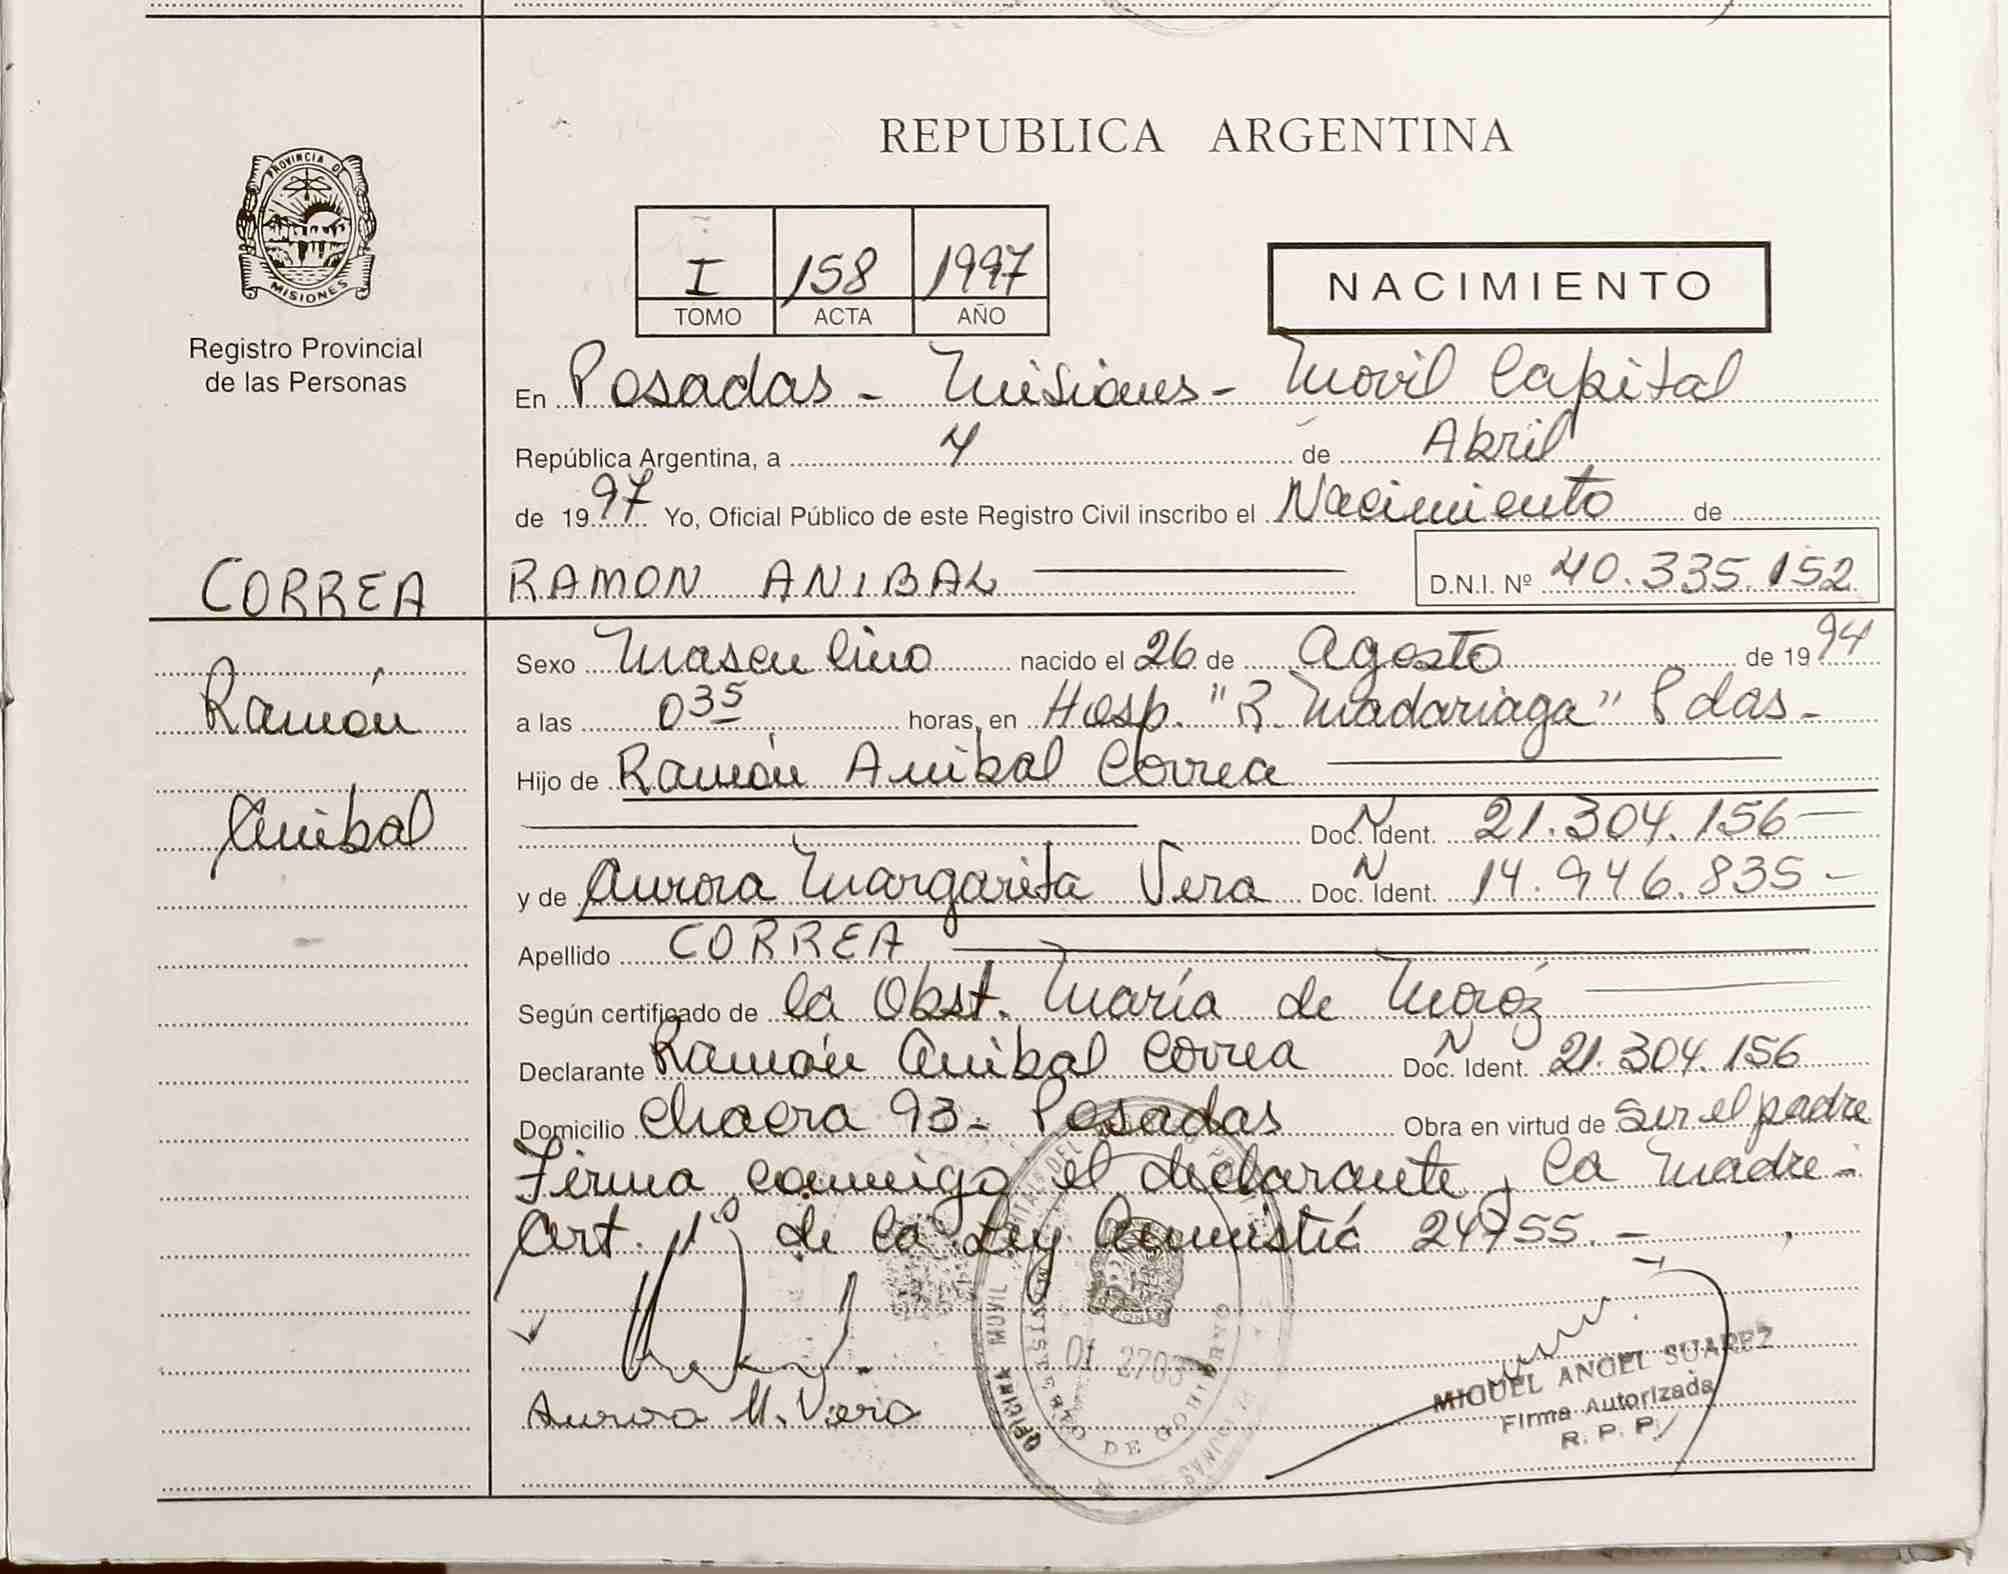 REPUBLICA ARGENTINA
PROVINCIA DE
MISIONES
Registro Provincial
de las Personas
I 158 1997
TOMO ACTA AÑO
NACIMIENTO
En Posadas - Misiones - Movil Capital
República Argentina, a 4 de Abril
de 1997 Yo, Oficial Público de este Registro Civil inscribo el Nacimiento de
CORREA RAMON ANIBAL D.N.I. Nº 40.335.152
Sexo Masculino nacido el 26 de Agosto de 1994
Ramón
a las 035 horas, en Hosp. "R. Madariaga" Pdas -
Hijo de Ramón Anibal Correa
Anibal
Doc. Ident. N 21.304.156
y de Aurora Margarita Vera Doc. Ident. N 14.946.835 -
Apellido CORREA
Según certificado de la Obst. María de Moróz
Declarante Ramón Anibal Correa Doc. Ident. N 21.304.156
Domicilio Chacra 93 - Posadas Obra en virtud de ser el padre
Firma conmigo el declarante y la madre -
Art. 1º de la Ley Amnistía 24755. -
Aurora M. Vera
OFICINA MOVIL
MINISTERIO DE GOBIERNO
MIGUEL ANGEL SUAREZ
Firma Autorizada
R. P. P.